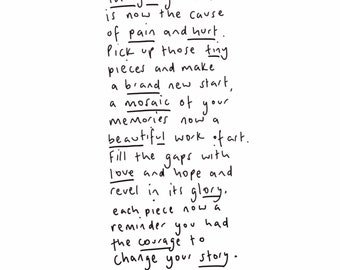 is now the cause
of pain and hurt.
Pick up those tiny
pieces and make
a brand new start,
a mosaic of your
memories now a
beautiful work of art.
Fill the gaps with
love and hope and
revel in its glory,
each piece now a
reminder you had
the courage to
change your story.